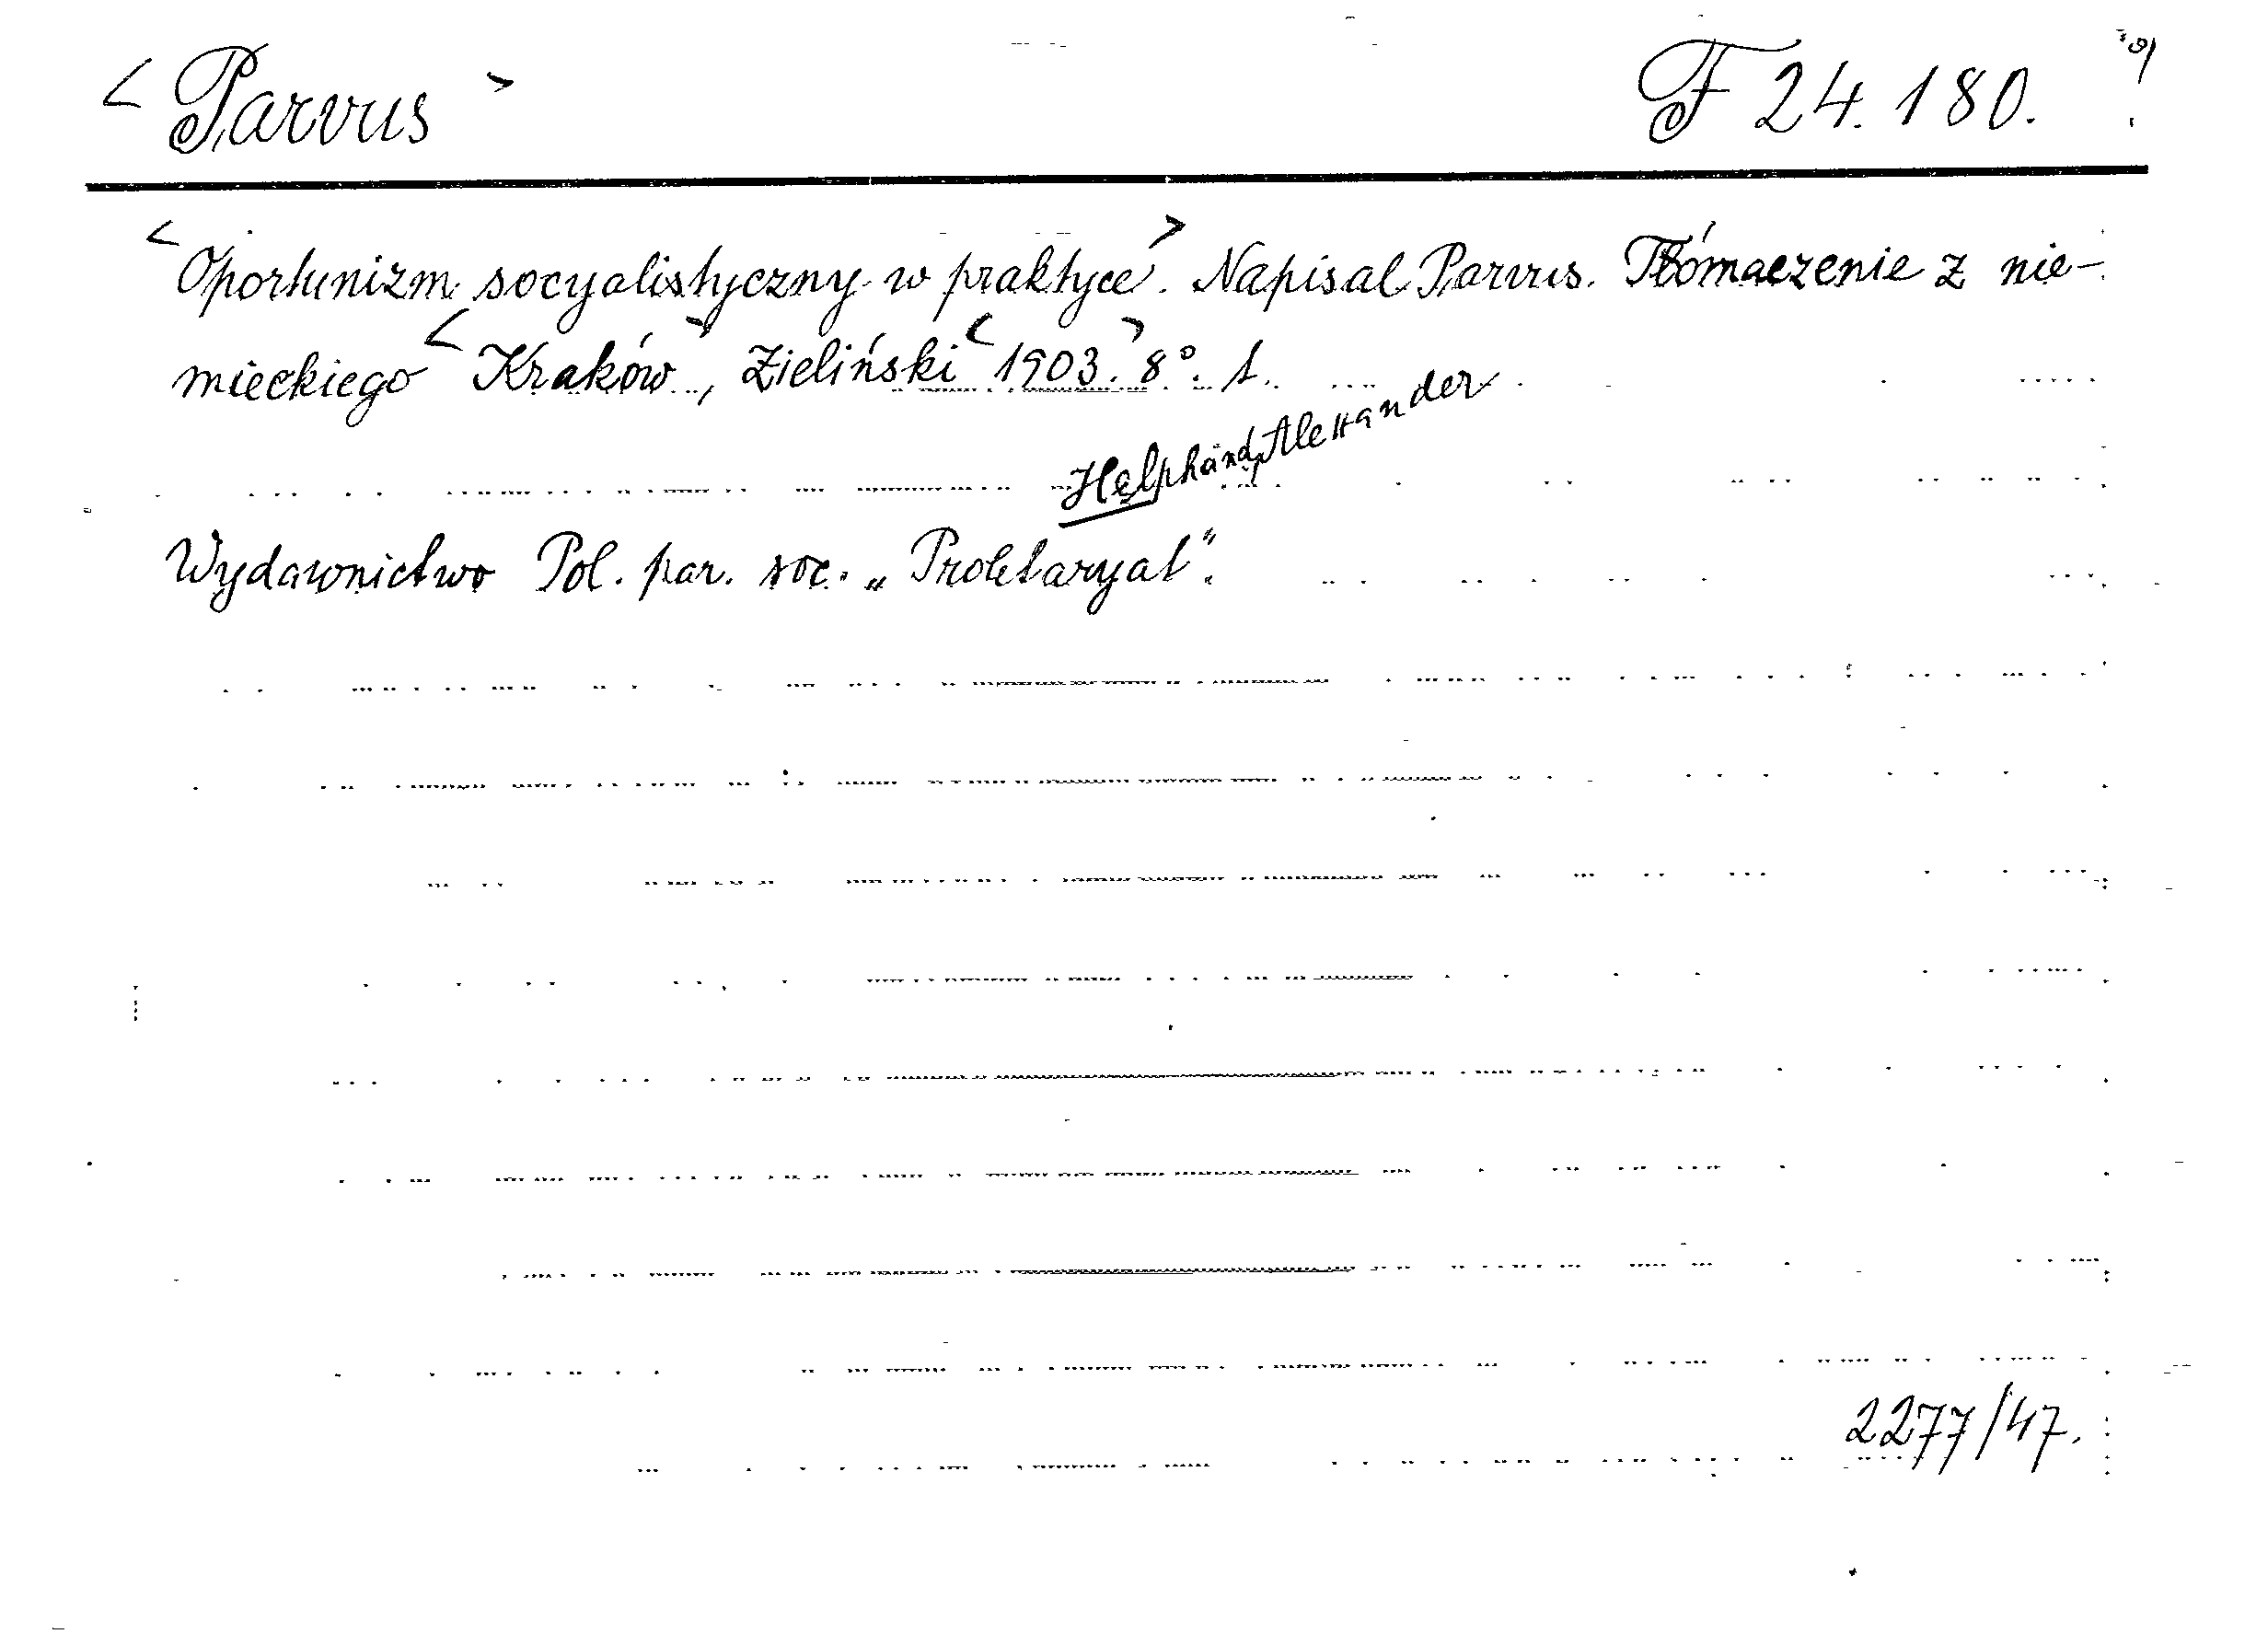 < Parvus > F 24.180.
<Oportunizm socyalistyczny w praktyce>. Napisal Parvus. Tłómaczenie z nie-
mieckiego <Kraków>, Zieliński <1903.> 8°. 1.
Helphand, Alexander
Wydawnictwo Pol. par. soc. „Proletaryat".
2277/47.